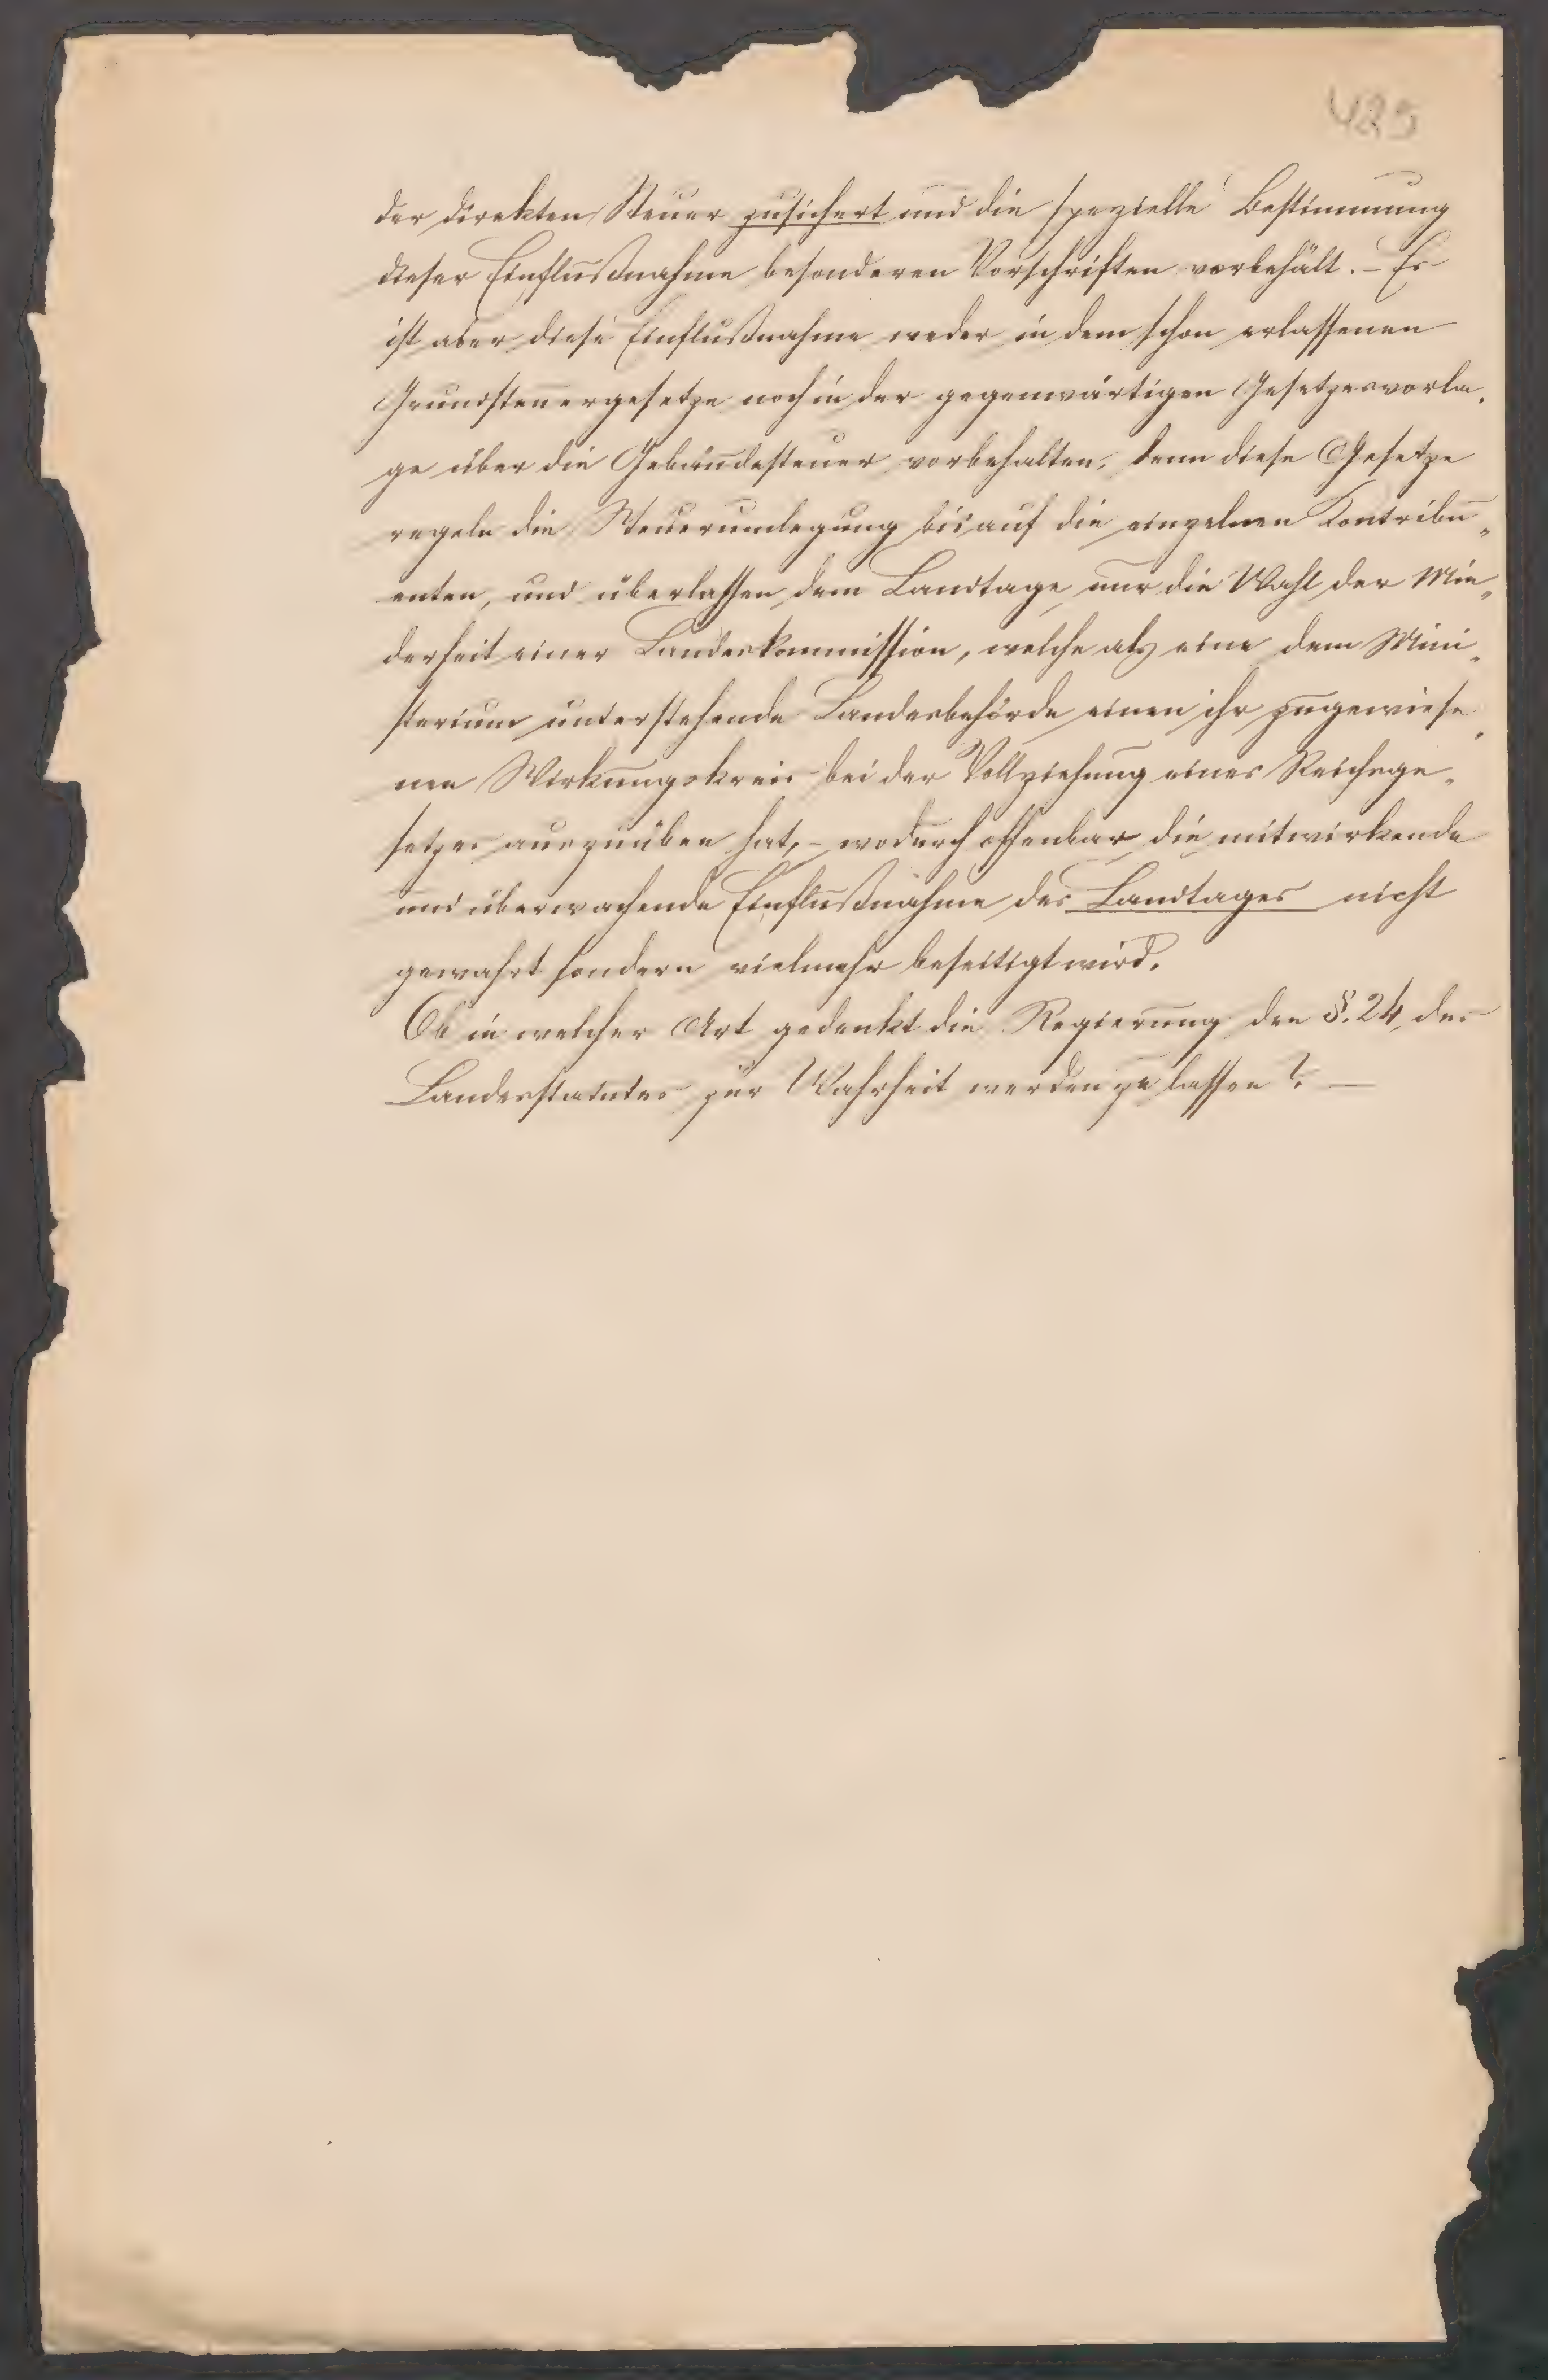 425
der direkten Steuer zusichert und die spezielle Bestimmung
dieser Einflußnahme besonderen Vorschriften vorbehält. – Es
ist aber diese Einflußnahme weder in dem schon erlassenen
Grundsteuergesetze noch in der gegenwärtigen Gesetzesvorla-
ge über die Gebäudesteuer vorbehalten, denn diese Gesetze
regeln die Steuerumlegung bis auf die einzelnen Contribu-
enten, und überlassen dem Landtage nur die Wahl der Min-
derheit einer Landeskommission, welche als eine dem Mini-
sterium unterstehende Landesbehörde einen ihr zugewiese-
nen Wirkungskreis bei der Vollziehung eines Reichsge-
setzes auszuüben hat, – wodurch offenbar die mitwirkende
und überwachende Einflußnahme des Landtages nicht
gewahrt sondern vielmehr beseitigt wird.
Ob in welcher Art gedenkt die Regierung den §. 24 des
Landesstatutes zur Wahrheit werden zu lassen? –